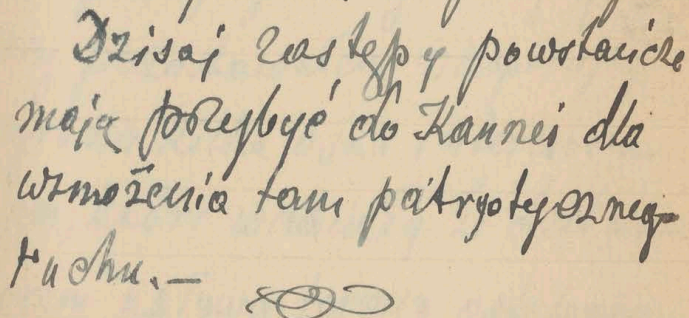 Dzisaj zastępy powstańcze
mają przybyć do Kannei dla
wzmożenia tam patryotycznego
ruchu.—